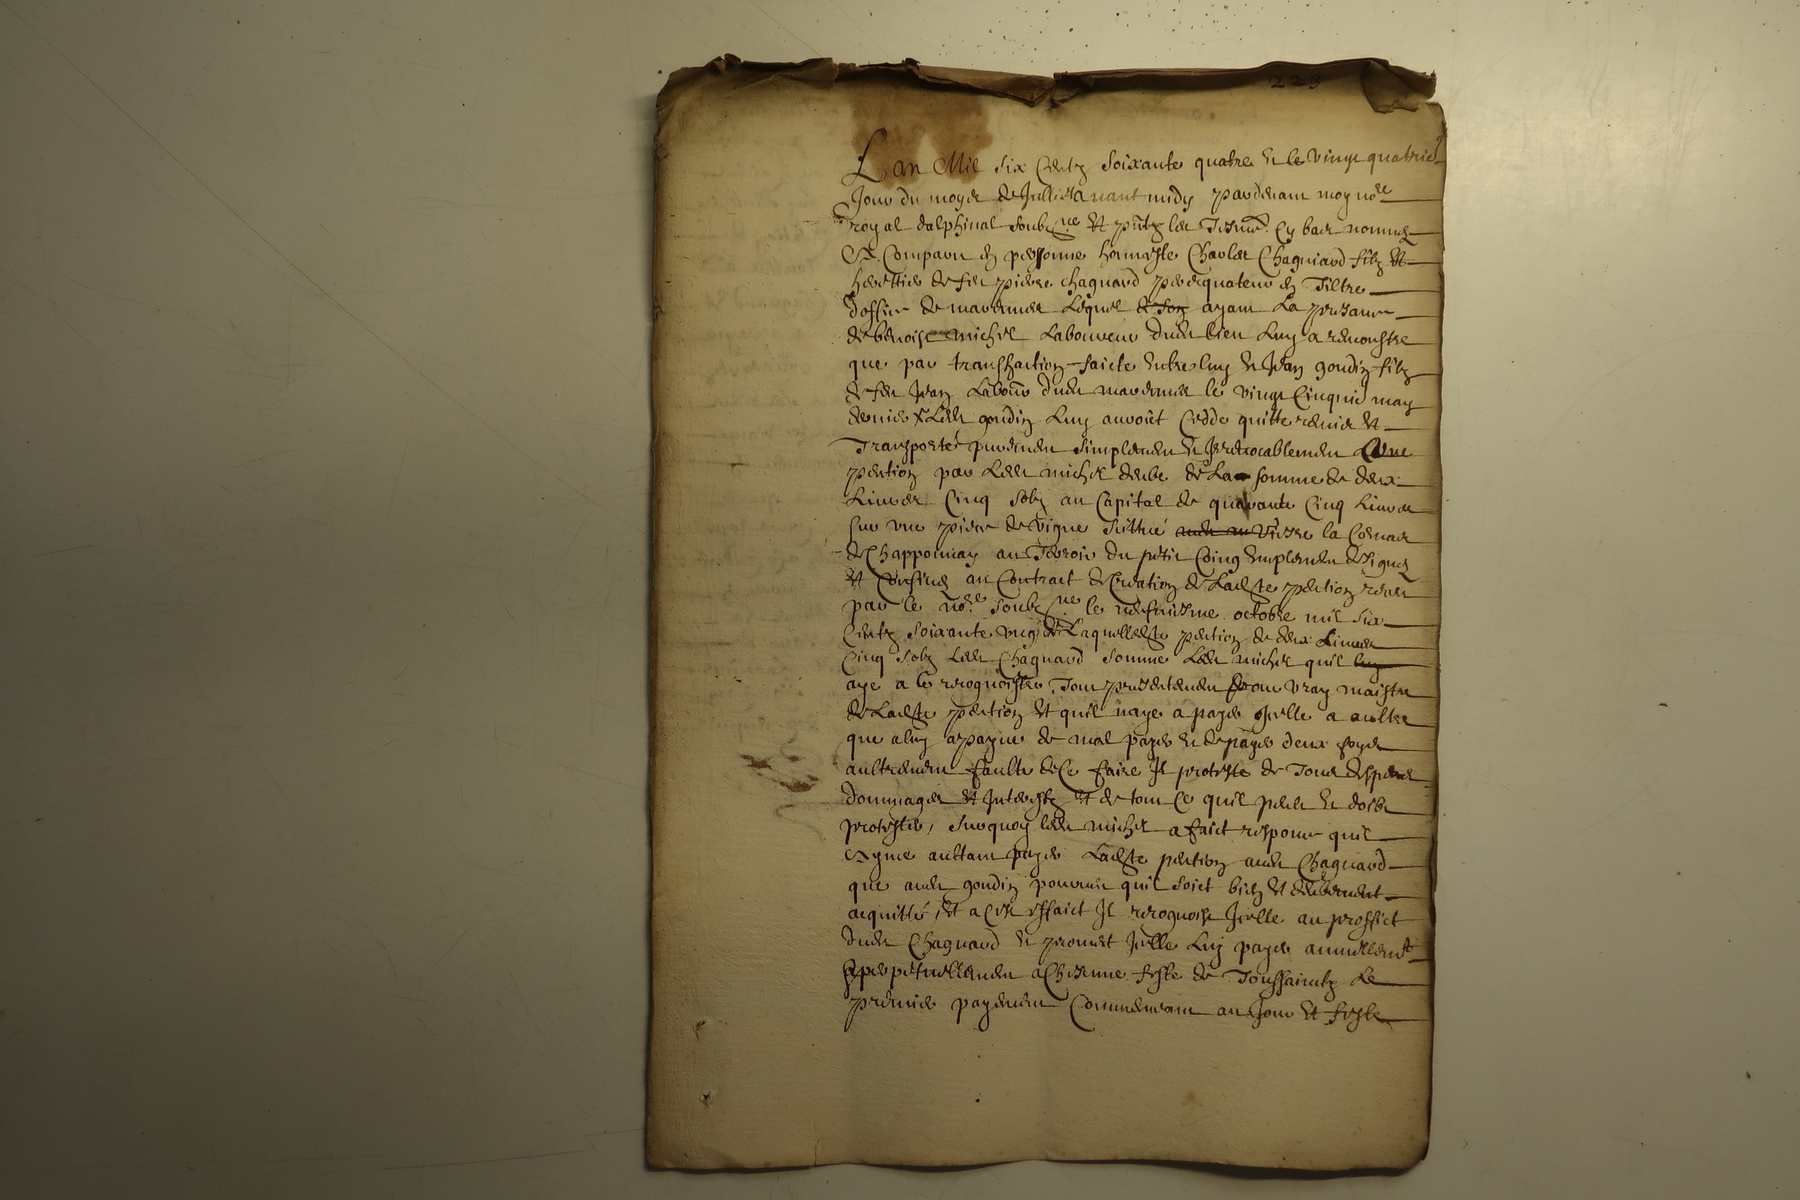 223
L'an Mil six Centz Soixante quatre et le vingt quatrie
Jour du moys de Juillet avant midy pardevant moy nore
royal dalphinal soubzne et pntz les Tesmz Cy bas nommez
Et Comparu en personne honneste Charles Chagniard filz et
herettier de feu pierre chagnard perequateur en Tiltre
d'office de marennes Lequel de son ayant La presance
de benoist michel Laboureur dudit lieu Luy a remonstre
que par transsaction faicte entre luy et Jean goudin filz
de feu Jean Labour dudit marennes le vingt Cinquie may
dernier Ledit goudin Luy auroit Cedde quitte remis et
Transporté purement simplement et Irrevocablement Une
pention par Ledit michel deube de La somme de deux
Livres Cinq solz au Capital de quarante Cinq Livres
sur une piece de vigne scittué audit au Viesse la Comar
de Chapponnay au Terroir du petit Coing emplement design
et Confine au Contract de Creation de Ladte pention receu
par le nore soubzne le neufuiesme octobre mil six
Centz soixante ung de Laquelledte pention de deux Livres
Cinq solz Ledit Chagnard somme Ledit michel quil luy
aye a le recognoistre Tout presentement pour vray maistre
de Ladte pention et quil naye a payer Icelle a aultre
que a luy a payne de mal payer et de payer deux foys
aultrement faulte de Ce faire Il proteste de Tous despens
Dommages et Interestz et de tout Ce quil peult et doibt
protester, surquoy ledit michel a faict responce quil
ayme aultant payer Ladte pention audit Chagnard
que audit goudin pourveu quil soict bien et deuberment
acquitté, et a Cest effaict Il recognoist Icelle au proffict
dudit Chagnard et promet Icelle Luy payer annuellemt
perpetuellement a Chesenne feste de Toussaintz Le
premier payement Commencant au Jour et feste